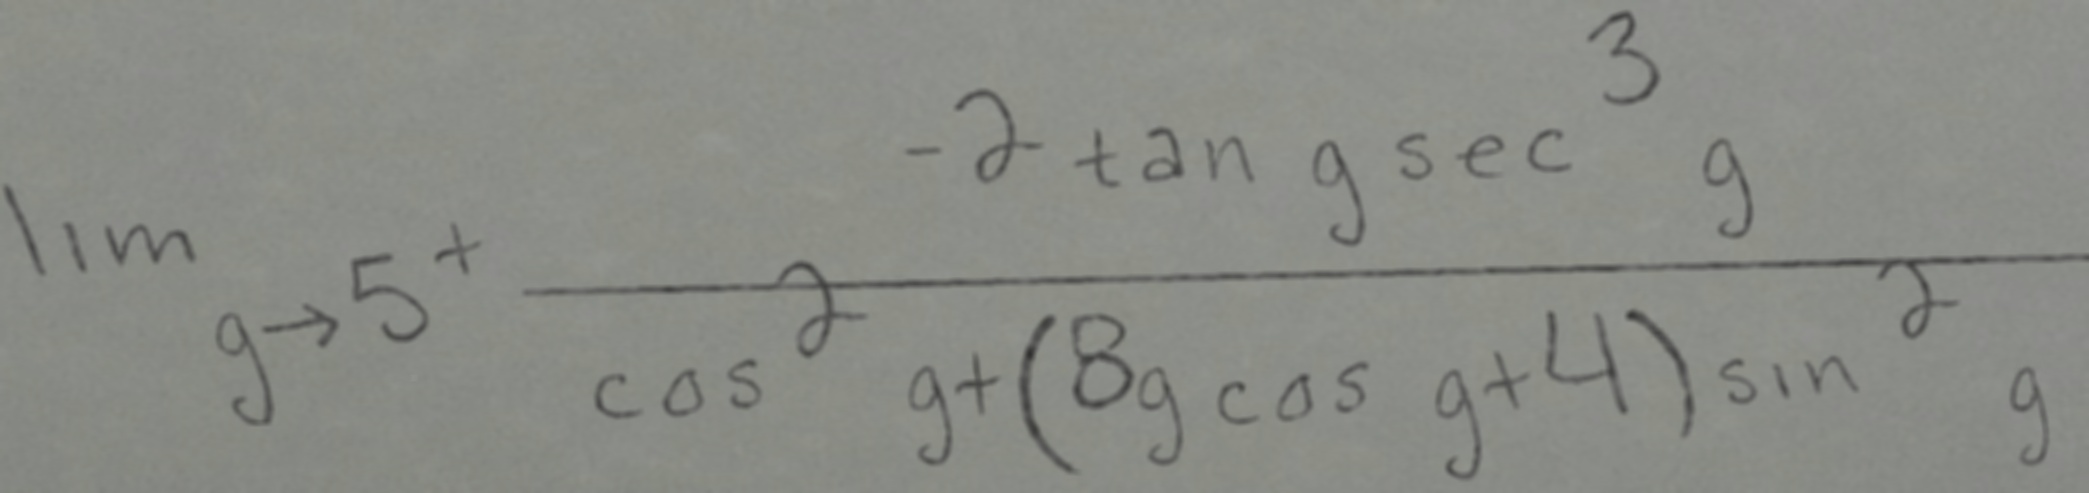 \lim_{g \to 5^+} \frac{-2 \tan g \sec^3 g}{\cos^2 g + (8g \cos g + 4) \sin^2 g}